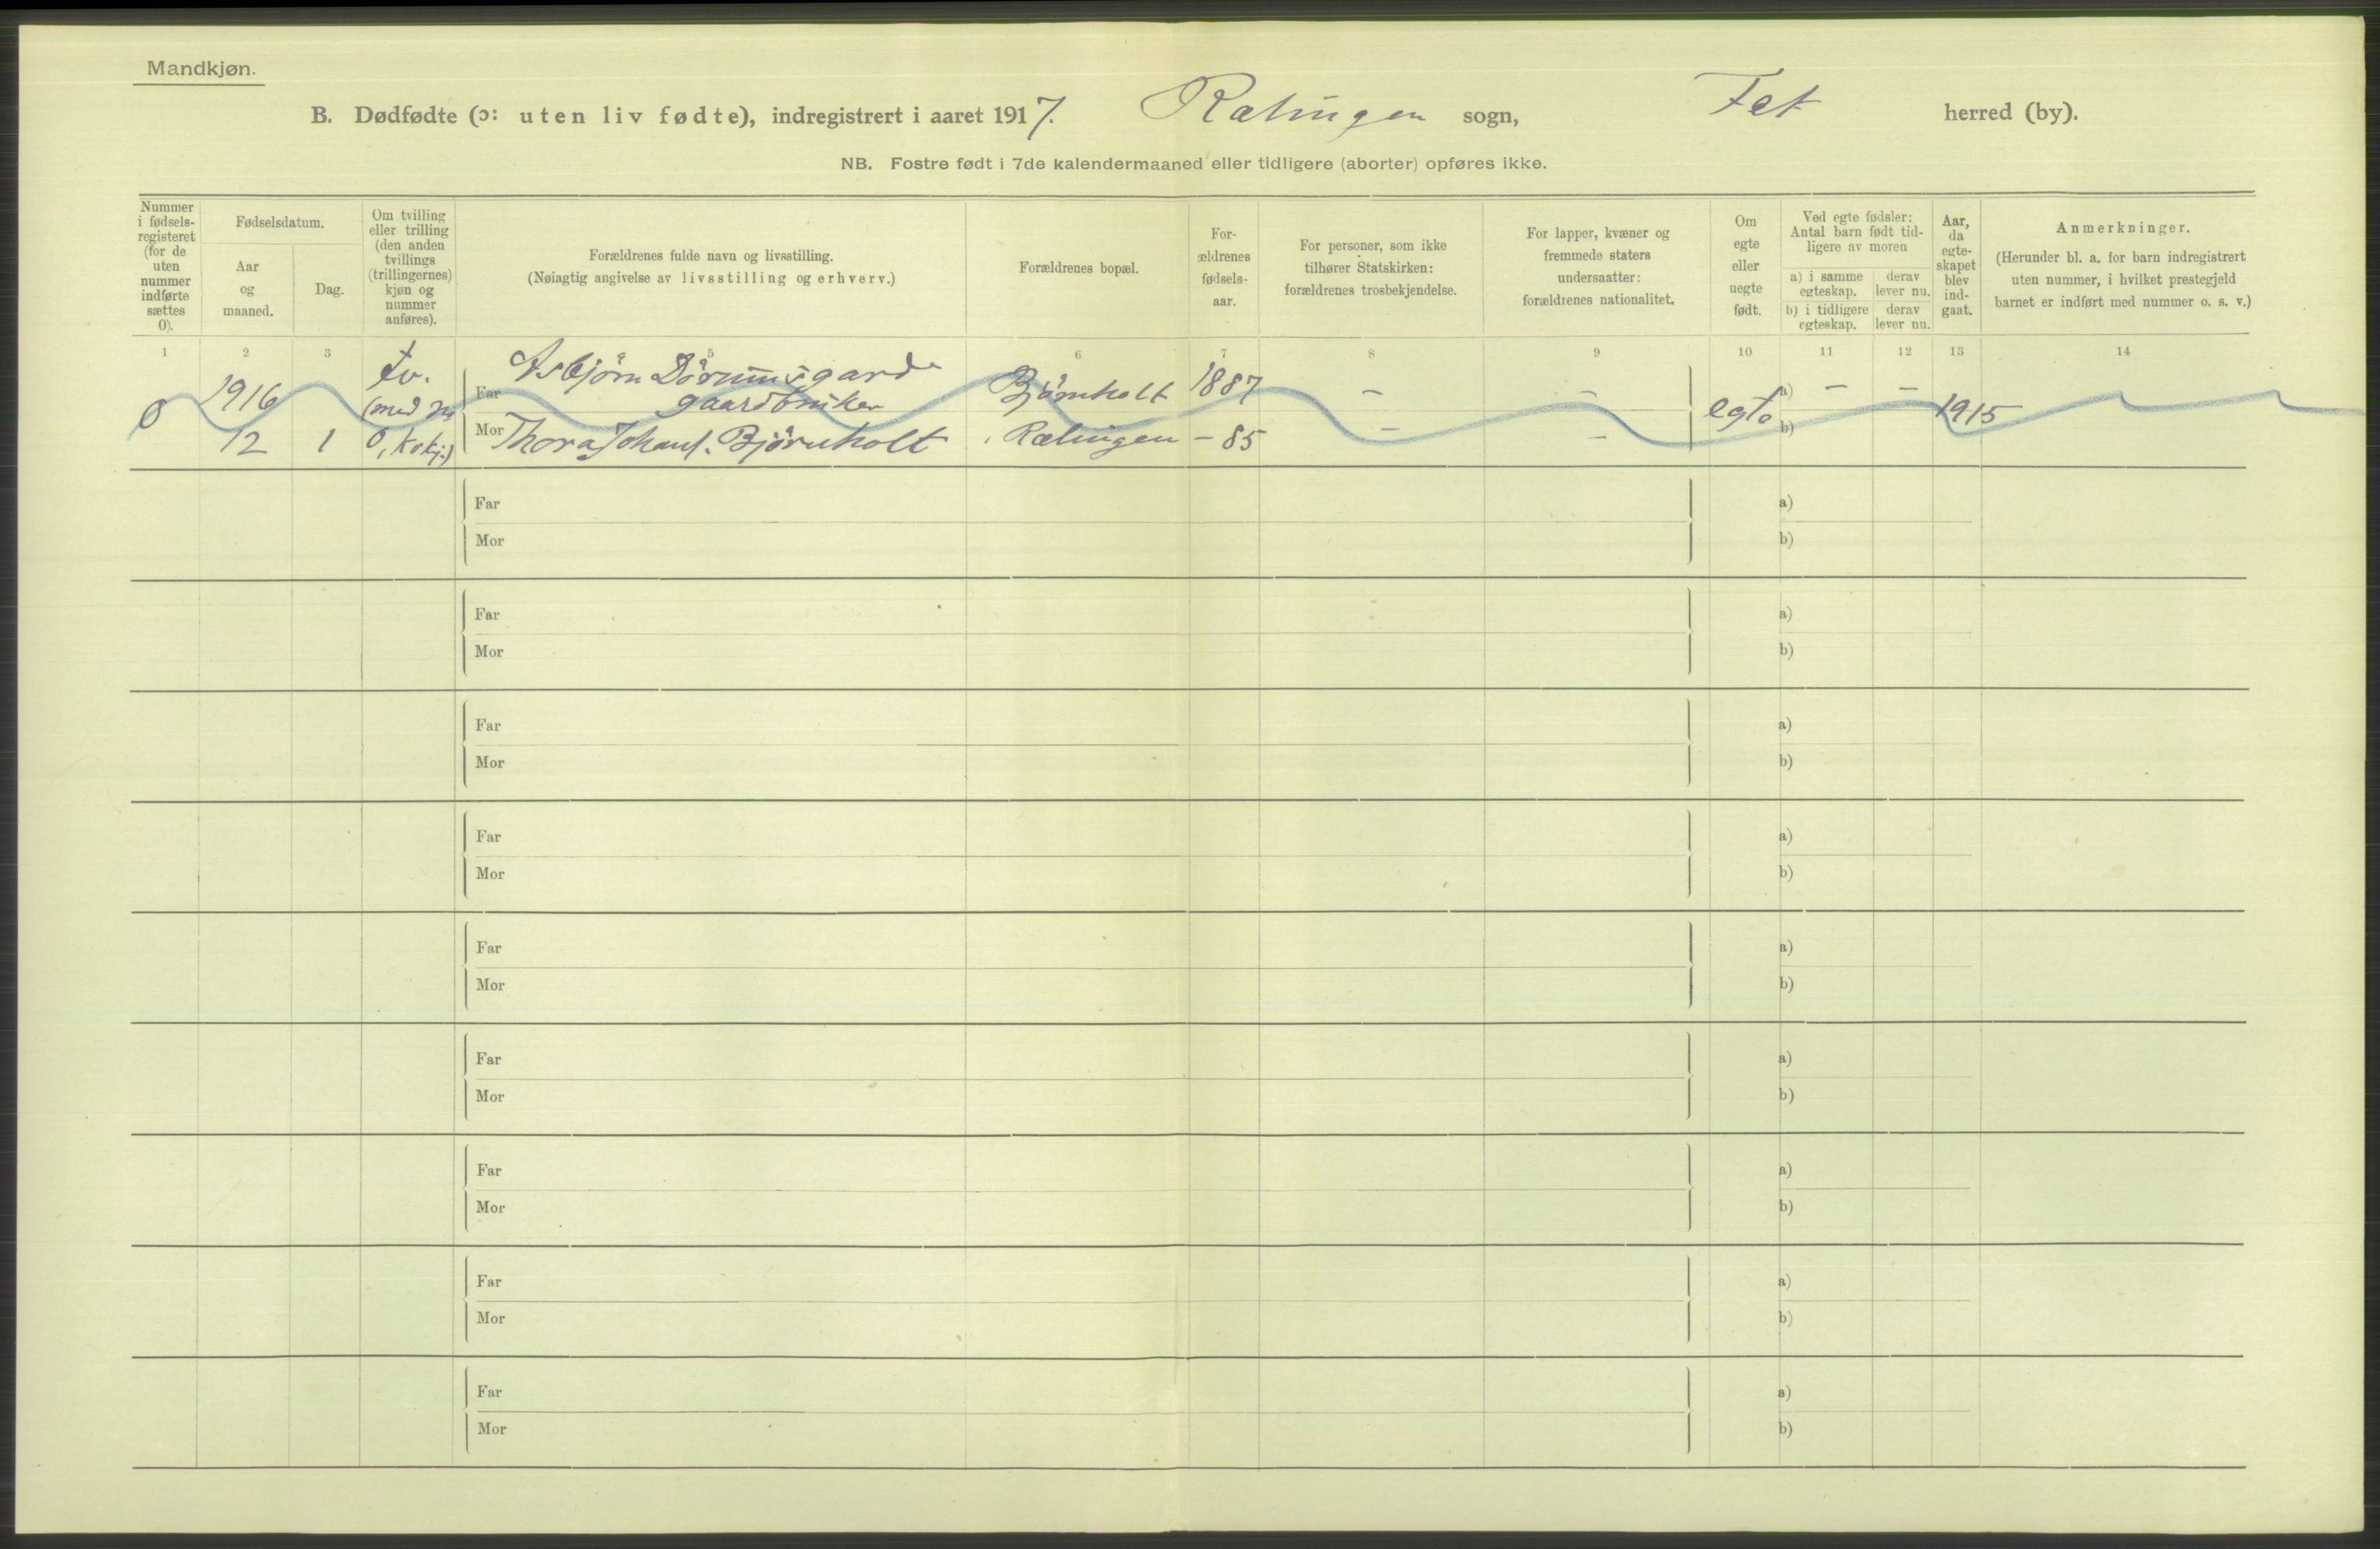 Mandkjøn.
B. Dødfødte (ɔ: uten liv fødte), indregistrert i aaret 1917. Rælingen sogn, Fet herred (by).
NB. Fostre født i 7de kalendermaaned eller tidligere (aborter) opføres ikke.
Nummer
i fødsels-
registeret
(for de
uten
nummer
indførte
sættes
0).
Fødselsdatum.
Aar
og
maaned.
Dag.
Om tvilling
eller trilling
(den anden
tvillings
(trillingernes)
kjøn og
nummer
anføres).
Forældrenes fulde navn og livsstilling.
(Nøiagtig angivelse av livsstilling og erhverv.)
Forældrenes bopæl.
For-
ældrenes
fødsels-
aar.
For personer, som ikke
tilhører Statskirken:
forældrenes trosbekjendelse.
For lapper, kvæner og
fremmede staters
undersaatter:
forældrenes nationalitet.
Om
egte
eller
uegte
født.
Ved egte fødsler:
Antal barn født tid-
ligere av moren
a) i samme
egteskap.
derav
lever nu.
b) i tidligere
egteskap.
derav
lever nu.
Aar,
da
egte-
skapet
blev
ind-
gaat.
Anmerkninger.
(Herunder bl. a. for barn indregistrert
uten nummer, i hvilket prestegjeld
barnet er indført med nummer o. s. v.)
1 2 3 5 6 7 8 9 10 11 12 13 14
0
1916
12
1
tv.
(med
0, kvkj.)
Far Asbjørn Dørumsgarde
gaardbruker
Mor Thora Johans. Bjørnholt
Bjørnholt
Rælingen
1887
- 85
-
-
-
-
egte
a) - -
b)
1915
Far
Mor
a)
b)
Far
Mor
a)
b)
Far
Mor
a)
b)
Far
Mor
a)
b)
Far
Mor
a)
b)
Far
Mor
a)
b)
Far
Mor
a)
b)
Far
Mor
a)
b)
Far
Mor
a)
b)